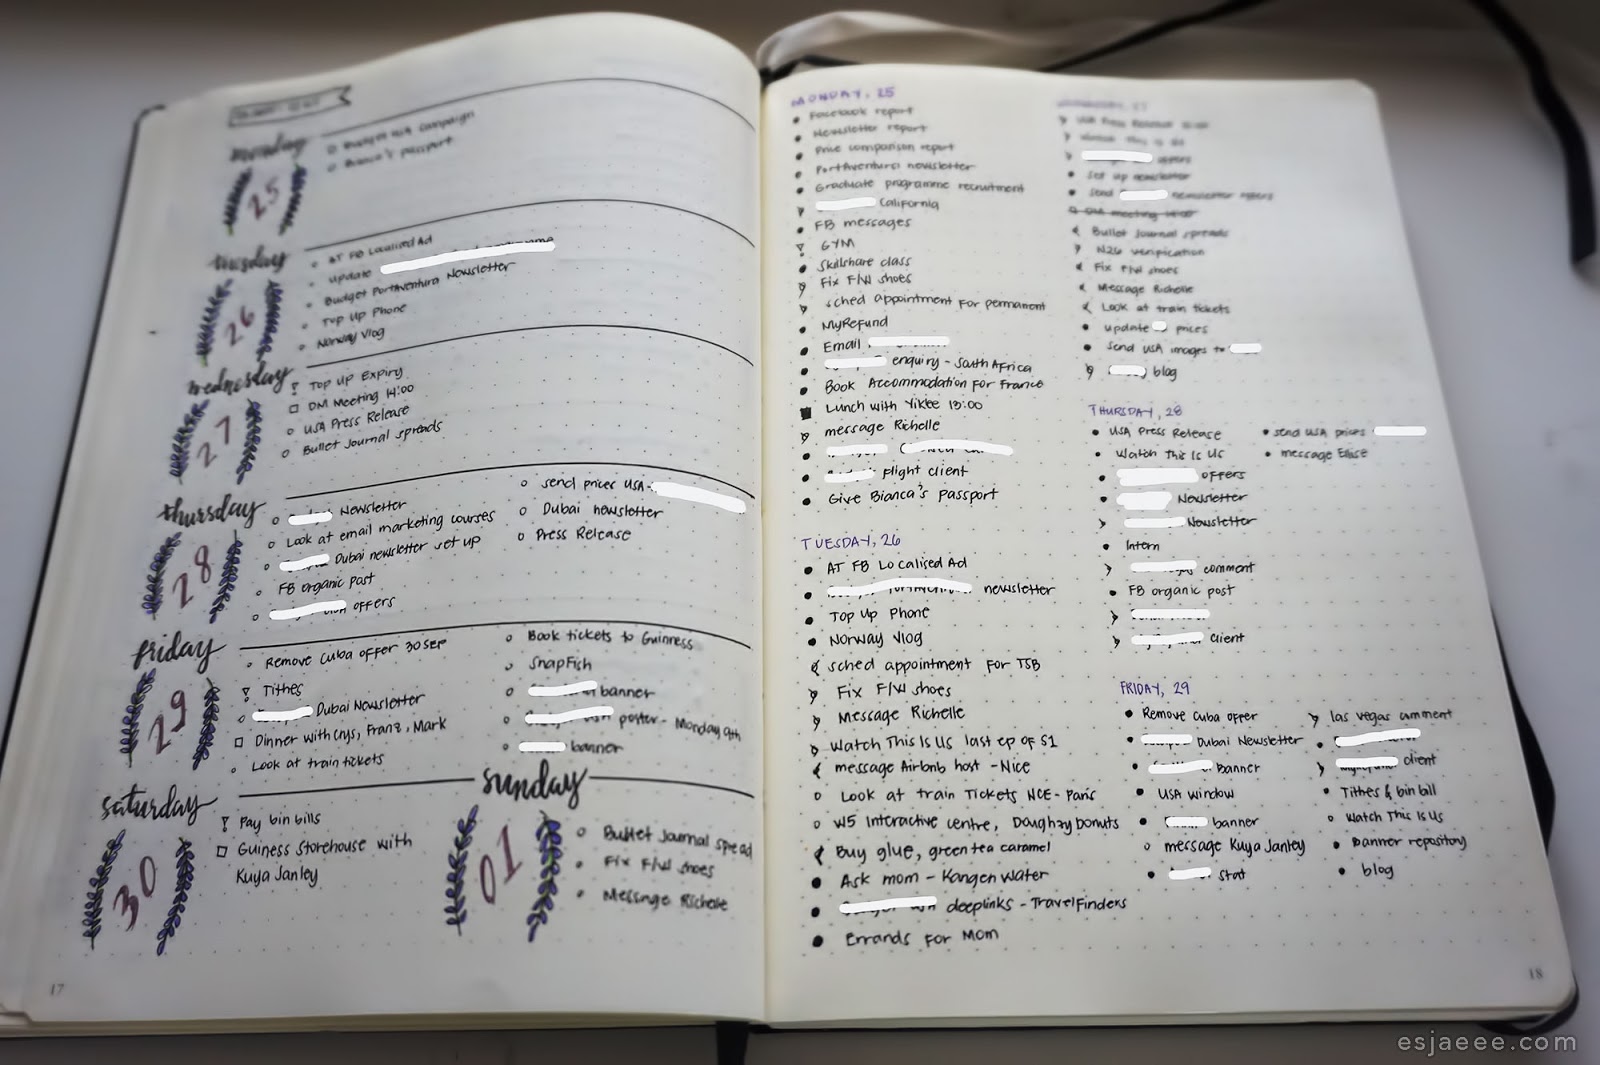 monday
25
Budget USA Campaign
Bianca's passport
tuesday
26
AT FB Localised Ad
update
Budget PortAventura Newsletter
Top Up Phone
Norway Vlog
wednesday
27
Top Up Expiry
DM Meeting 14:00
USA Press Release
Bullet Journal spreads
thursday
28
Newsletter
Look at email marketing courses
Dubai newsletter set up
FB organic post
offers
send prices USA-
Dubai newsletter
Press Release
friday
29
Remove Cuba offer 30 sep
Tithes
Dubai Newsletter
Dinner with crys, Franz, Mark
Look at train tickets
Book tickets to Guinness
SnapFish
banner
poster - Monday 9th
banner
saturday
30
Pay bin bills
Guiness Storehouse with
Kuya Janley
sunday
01
Bullet Journal spread
Fix F/W shoes
Message Richelle
17
MONDAY, 25
Facebook report
Newsletter report
Price comparison report
PortAventura newsletter
Graduate programme recruitment
California
FB messages
GYM
Skillshare class
Fix F/W shoes
sched appointment for permanent
MyRefund
Email
enquiry - South Africa
Book Accommodation for France
Lunch with Yiklee 13:00
message Richelle
Flight client
Give Bianca's passport
TUESDAY, 26
AT FB Localised Ad
newsletter
Top Up Phone
Norway Vlog
sched appointment for TSB
Fix F/W shoes
Message Richelle
Watch This Is Us last ep of S1
message Airbnb host - Nice
Look at train Tickets NCE - Paris
W5 Interactive centre, Doughzy bonuts
Buy glue, green tea caramel
Ask mom - Kangen Water
deeplinks - TravelFinders
Errands for Mom
27
USA Press Release
offers
Set up newsletter
Send newsletter offers
DM meeting 14:00
Bullet Journal spreads
N26 verification
Fix F/W shoes
Message Richelle
Look at train tickets
update prices
send USA images to
blog
THURSDAY, 28
USA Press Release
Watch This Is Us
offers
Newsletter
Newsletter
Intern
comment
FB organic post
client
send USA prices
message Elise
FRIDAY, 29
Remove Cuba offer
Dubai Newsletter
Banner
USA window
banner
message Kuya Janley
stat
las vegas comment
client
Tithes & bin bill
Watch This Is Us
Banner repository
blog
18
esjaeee.com